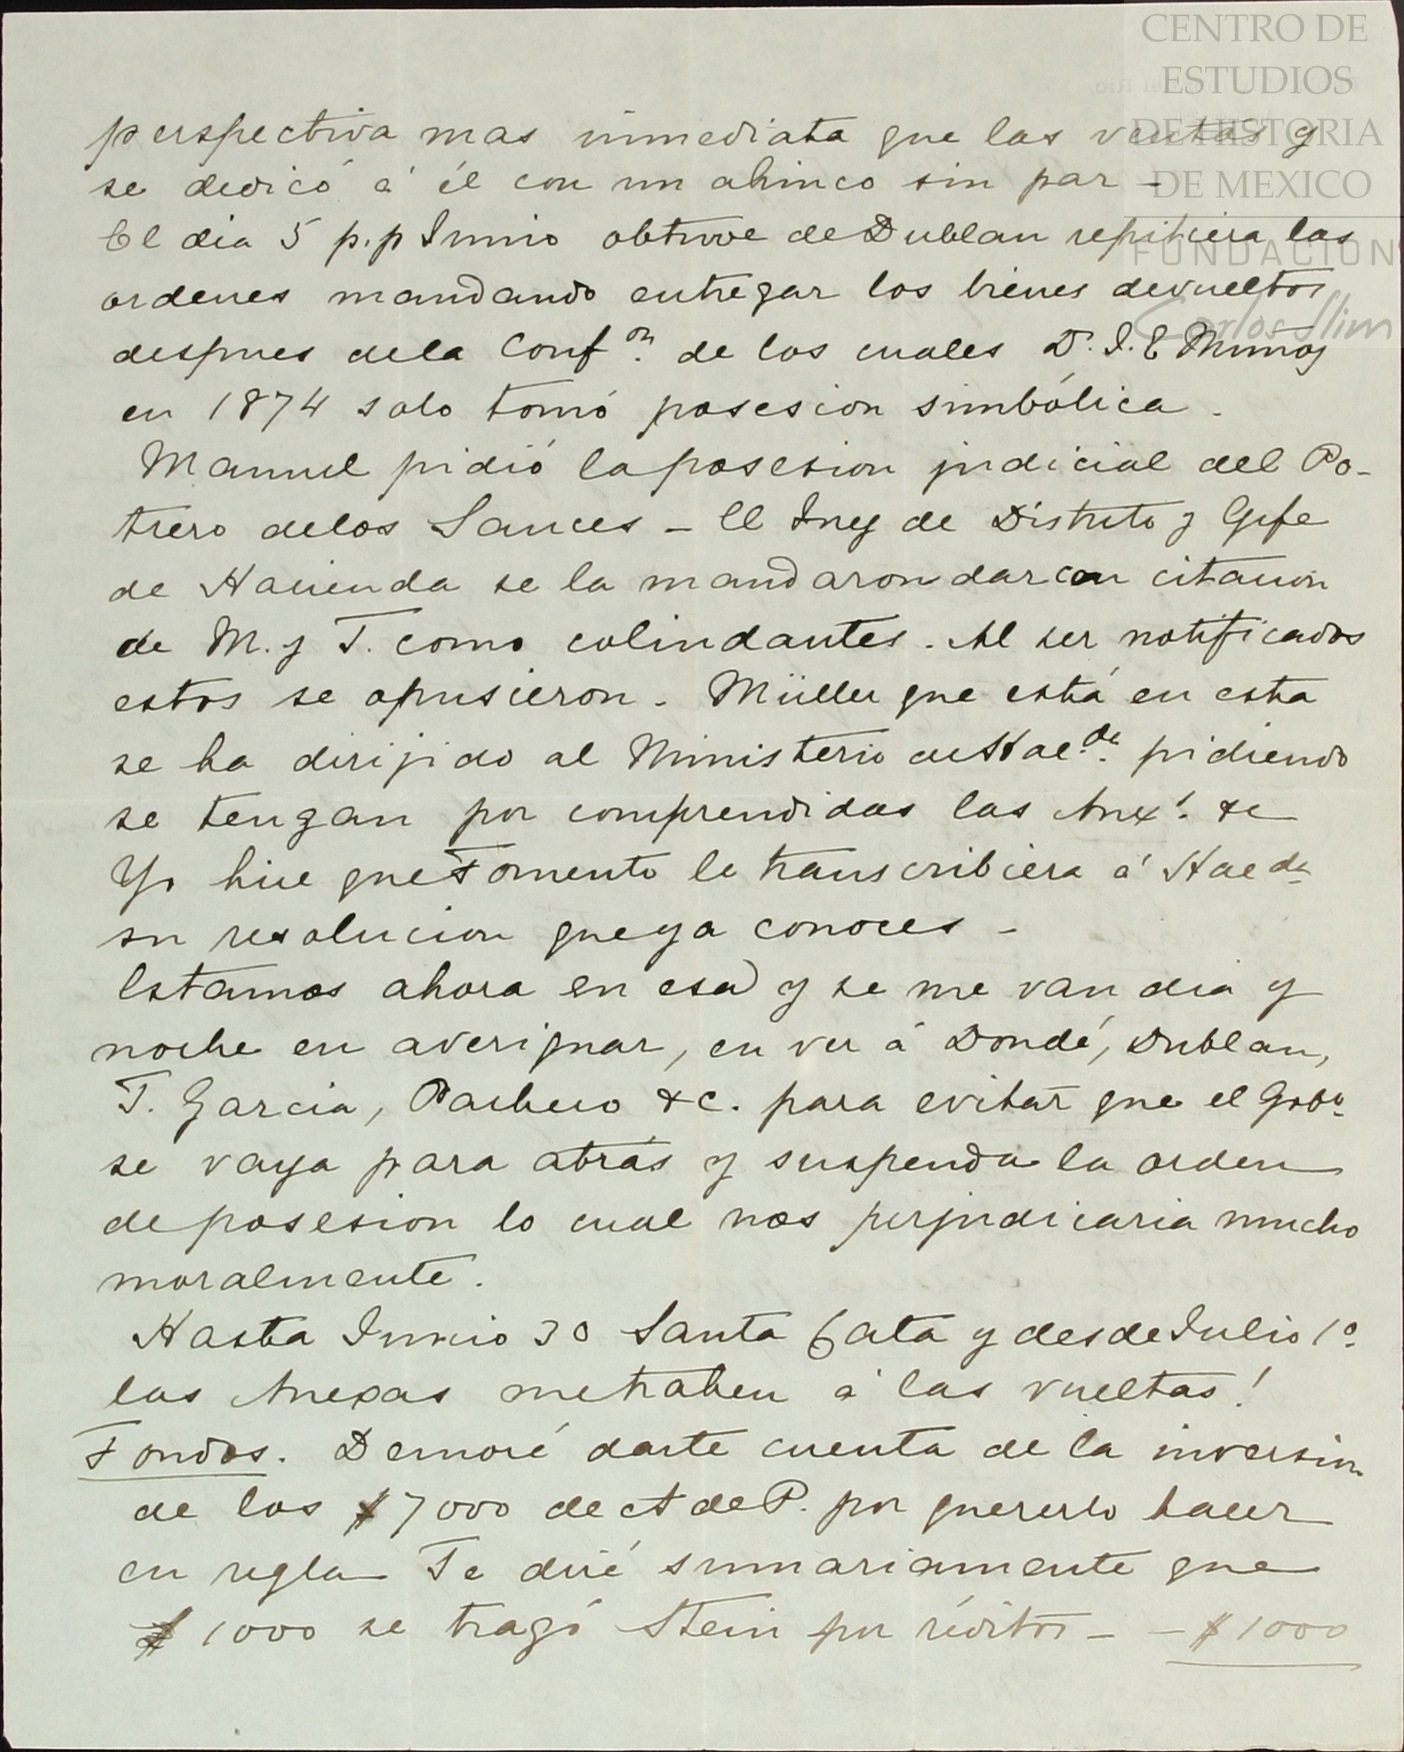 CENTRO DE
ESTUDIOS
DE HISTORIA
DE MEXICO
FUNDACION
Carlos Slim
perspectiva mas inmediata que las ventas y
se dedicó á él con un ahinco sin par -
El dia 5 p.p Junio obtuve de Dublan repitiera las
ordenes mandando entregar los bienes devueltos
despues dela Confon. de los cuales D. J. E Muñoz
en 1874 solo tomó posesion simbólica.
Manuel pidió la posesion judicial del Po-
trero delos Sauces - El Juez de Distrito y Gefe
de Hacienda se la mandaron dar con citacion
de M. y T. como colindantes. Al ser notificados
estos se opusieron. Müller que está en esta
se ha dirijido al Ministerio de Hacda. pidiendo
se tengan por comprendidas las Anxs. &c
Yo hice que Fomento le transcribiera á Hacda
su resolucion que ya conoces -
Estamos ahora en esa y se me van dia y
noche en averiguar, en ver á Dondé, Dublan,
T. Garcia, Pacheco &c. para evitar que el Gobo.
se vaya para atrás y suspenda la orden
de posesion lo cual nos perjudicaria mucho
moralmente.
Hasta Junio 30 Santa Cata y desde Julio 1o.
las Anexas me traben á las vueltas!
Fondos. Demoré darte cuenta de la inversion
de los $7000 de ct de P. por quererlo hacer
en regla Te diré sumariamente que
$1000 se tragó Stein por réditos - - $1000